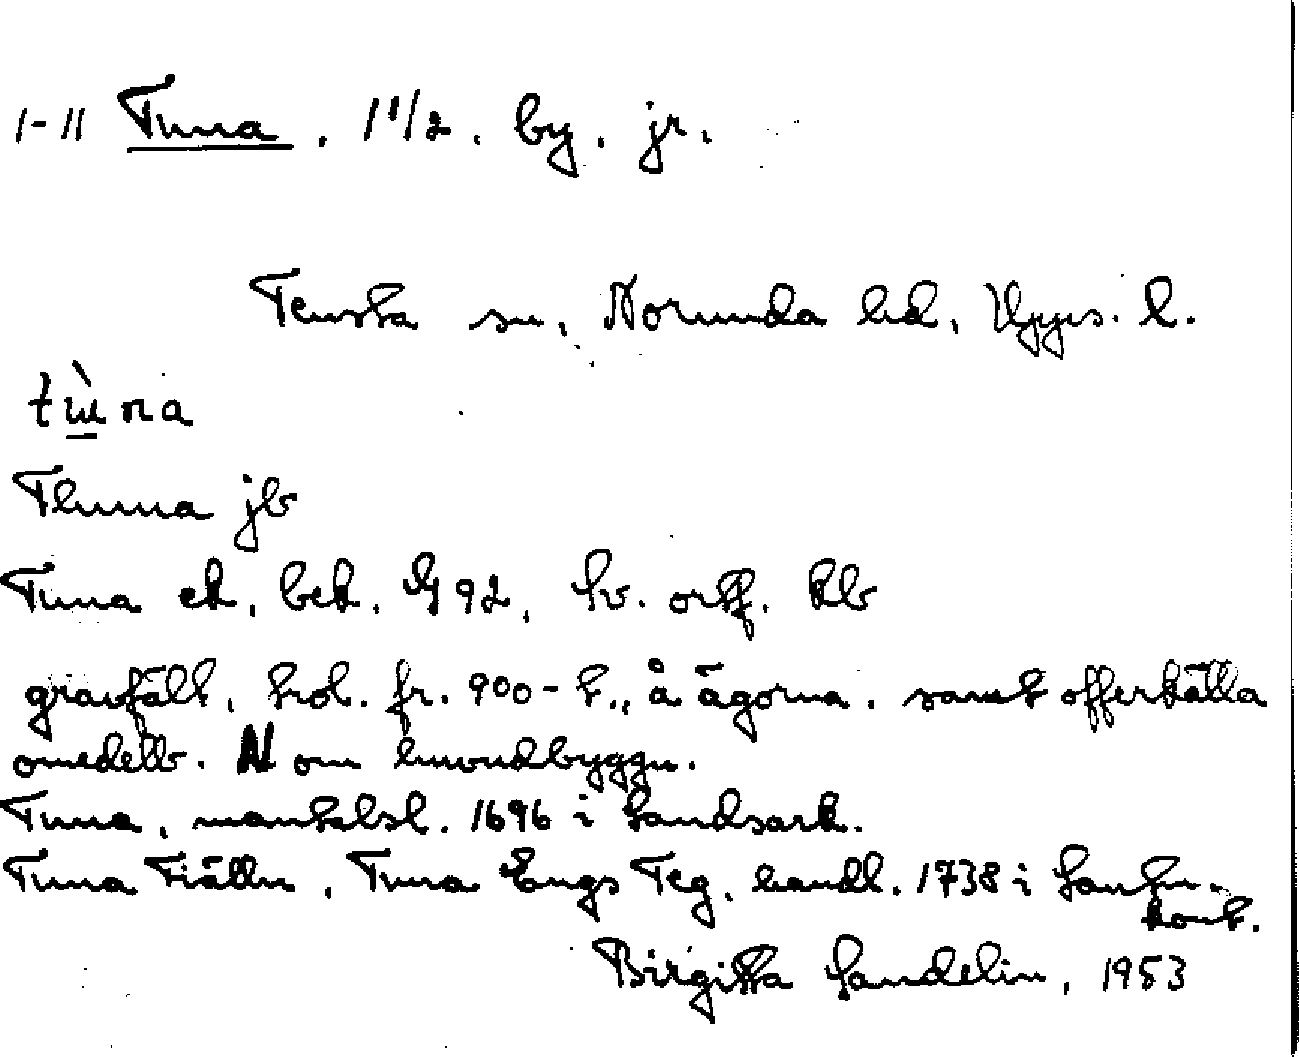 I-II Tuna. 1 1/2. by. jr.
Tensta sn, Norunda hd, Upps. l.
tɯ̀na
Thuna jb
Tuna ek. bek. G 92, sv. ortf. kb
gravfält, trol. fr. 900-t., å ägorna. samt offerkälla
omedelb. N om huvudbyggn.
Tuna, mantalsl. 1696 i Landsark.
Tuna Fiälln, Tuna Engs Teg, handl. 1738 i Lantm.
kont.
Birgitta Sandelin, 1953